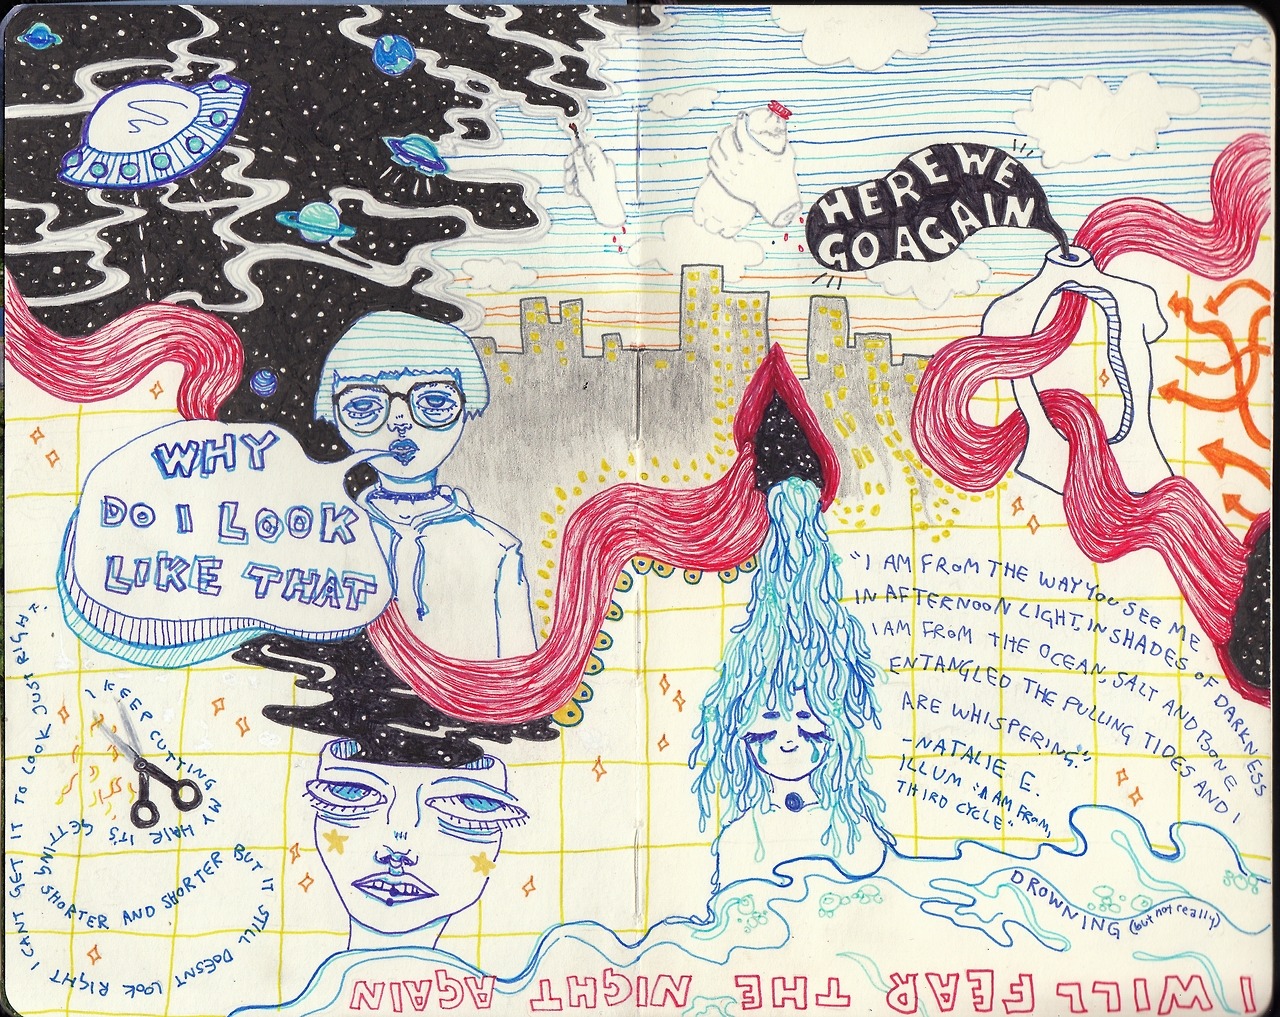 HERE WE
GO AGAIN
WHY
DO I LOOK
LIKE THAT
"I AM FROM THE WAY YOU SEE ME
IN AFTERNOON LIGHT, IN SHADES OF DARKNESS
I AM FROM THE OCEAN, SALT AND BONE
ENTANGLED THE PULLING TIDES AND I
ARE WHISPERING."
-NATALIE E.
ILLUM "I AM FROM,
THIRD CYCLE".
I KEEP CUTTING MY HAIR IT'S GETTING SHORTER AND SHORTER BUT IT STILL DOESNT LOOK RIGHT I CANT GET IT TO LOOK JUST RIGHT.
DROWNING (but not really)
I WILL FEAR THE NIGHT AGAIN